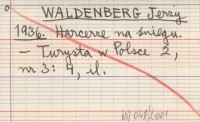 WALDENBERG Jerzy
1936. Harcerze na śniegu.
– Turysta w Polsce 2,
nr 3: 4, il.